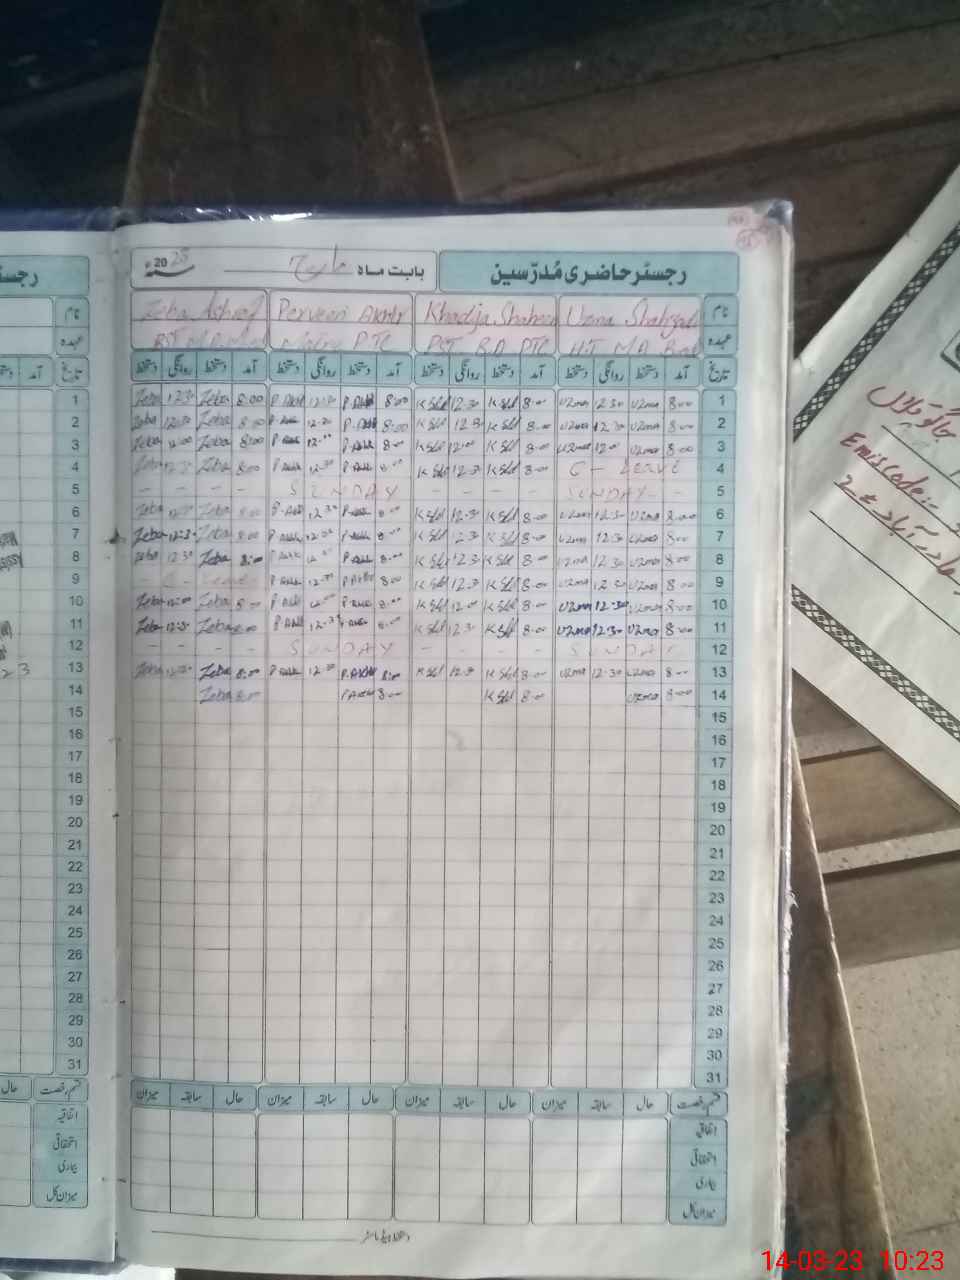 رجسٹر حاضری مُدرّسین
بابت ماہ مارچ 2023ء
نام Uzma Shahzad Khadija Shaheen Perveen Akhtr Zeba Ashraf
عہدہ H.T M.A B.ed PST B.A PTC PTC
تاریخ آمد دستخط روانگی دستخط آمد دستخط روانگی دستخط آمد دستخط روانگی دستخط آمد دستخط روانگی دستخط
1 8:00 Uzma 12:30 Uzma 8:00 K Shd 12:30 K Shd 8:00 P.Akh 12:30 P.Akh 8:00 Zeba 12:30 Zeba
2 8:00 Uzma 12:30 Uzma 8:00 K Shd 12:30 K Shd 8:00 P.Akh 12:30 P.Akh 8:00 Zeba 12:30 Zeba
3 8:00 Uzma 12:00 Uzma 8:00 K Shd 12:00 K Shd 8:00 P.Akh 12:00 P.Akh 8:00 Zeba 12:00 Zeba
4 C - Leave 8:00 K Shd 12:30 K Shd 8:00 P.Akh 12:30 P.Akh 8:00 Zeba
5 SUNDAY - - - - SUNDAY - -
6 8:00 Uzma 12:30 Uzma 8:00 K Shd 12:30 K Shd 8:00 P.Akh 12:30 P.Akh 8:00 Zeba
7 8:00 Uzma 12:30 Uzma 8:00 K Shd 12:30 K Shd 8:00 P.Akh 12:30 P.Akh 8:00 Zeba 12:30 Zeba
8 8:00 Uzma 12:30 Uzma 8:00 K Shd 12:30 K Shd 8:00 P.Akh P.Akh 8:00 Zeba 12:30 Zeba
9 8:00 Uzma 12:30 Uzma 8:00 K Shd 12:30 K Shd 8:00 P.Akh 12:30 P.Akh - C - Leave
10 8:00 Uzma 12:30 Uzma 8:00 K Shd 12:00 K Shd 8:00 P.Akh 12:00 P.Akh 8:00 Zeba 12:00 Zeba
11 8:00 Uzma 12:30 Uzma 8:00 K Shd 12:30 K Shd 8:00 P.Akh 12:30 P.Akh 8:00 Zeba 12:30 Zeba
12 SUNDAY - - - - SUNDAY - - -
13 8:00 Uzma 12:30 Uzma 8:00 K Shd 12:30 K Shd 8:00 P.Akh 12:30 P.Akh 8:00 Zeba 12:30 Zeba
14 8:00 Uzma 8:00 K Shd 8:00 P.Akh 8:00 Zeba
15
16
17
18
19
20
21
22
23
24
25
26
27
28
29
30
31
قسم رخصت حال سابقہ میزان حال سابقہ میزان حال سابقہ میزان حال سابقہ میزان
اتفاقیہ
استحقاقی
بیماری
میزان کل
دستخط ہیڈ ماسٹر
رجسٹ
نام
عہدہ
تاریخ آمد
1
2
3
4
5
6
7
8
9
10
11
12
13
14
15
16
17
18
19
20
21
22
23
24
25
26
27
28
29
30
31
قسم رخصت حال
اتفاقیہ
استحقاقی
بیماری
میزان کل
Emiscode:-
14-03-23 10:23